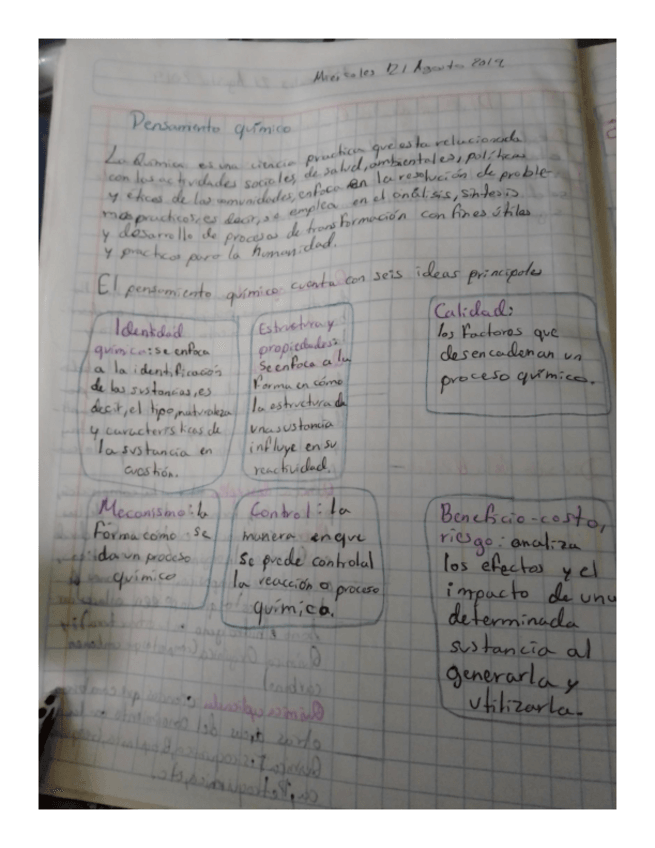 Miércoles 21 Agosto 2019
Pensamiento químico
La Química es una ciencia practica que esta relacionada
con las actividades sociales, de salud, ambientales, políticas
y éticas de las comunidades, enfoca en la resolución de proble-
mas practicos, es decir, se emplea en el análisis, sintesis
y desarrollo de procesos de transformación con fines útiles
y practicos para la humanidad.
El pensamiento químico cuenta con seis ideas principales
Identidad
química: se enfoca
a la identificación
de las sustancias, es
decir, el tipo, naturaleza
y características de
la sustancia en
cuestión.
Estructura y
propiedades:
Se enfoca a la
forma en cómo
la estructura de
una sustancia
influye en su
reactividad.
Calidad:
los factores que
desencadenan un
proceso químico.
Mecanismo: la
forma como se
da un proceso
químico
Control: la
manera en que
se puede controlal
la reacción o proceso
química.
Beneficio-costo,
riesgo: analiza
los efectos y el
impacto de una
determinada
sustancia al
generarla y
utilizarla.